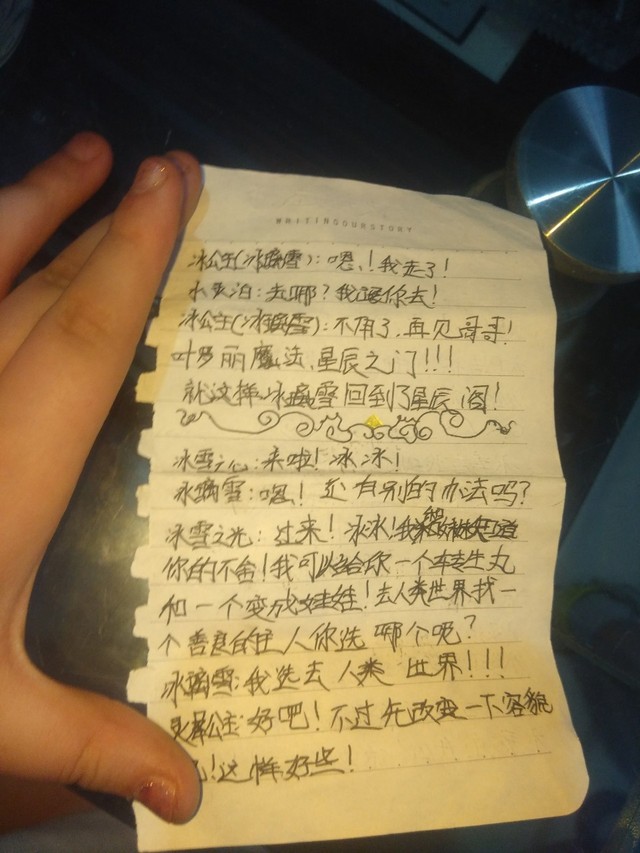 WRITINGOURSTORY
冰公主(冰璃雪):嗯!我走了!
水:去哪?我跟你去!
冰公主(冰璃雪):不用了,再见哥哥!
叶罗丽魔法、星辰之门!!!
就这样冰璃雪回到了星辰阁!
冰雪之心:来啦!冰冰!
冰璃雪:嗯!还有别的办法吗?
冰雪之光:过来!冰冰!我和妹妹知道
你的不舍!我可以给你一个转生丸
和一个变成娃娃!去人类世界找一
个善良的主人你选哪个呢?
冰璃雪:我选去人类世界!!!
公主:好吧!不过先改变一下容貌
!这样好些!